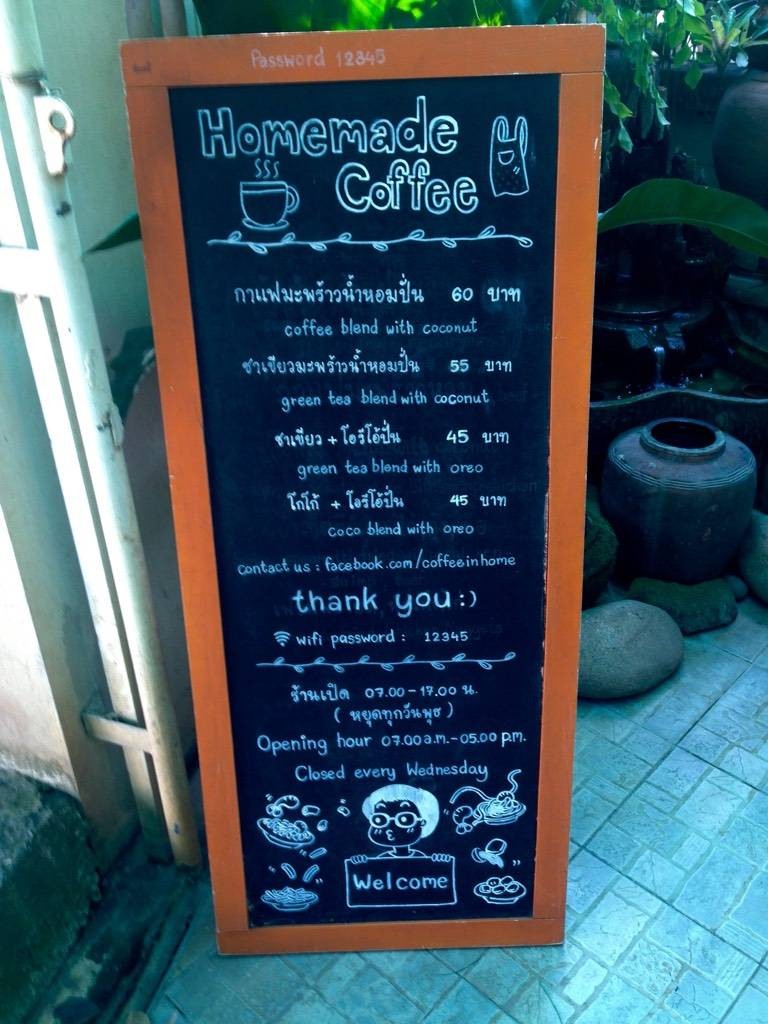 Password 12345
Homemade
Coffee
กาแฟมะพร้าวน้ำหอมปั่น 60 บาท
coffee blend with coconut
ชาเขียวมะพร้าวน้ำหอมปั่น 55 บาท
green tea blend with coconut
ชาเขียว + โอรีโอ้ปั่น 45 บาท
green tea blend with oreo
โกโก้ + โอรีโอ้ปั่น 45 บาท
coco blend with oreo
contact us : facebook.com/coffeeinhome
thank you :)
wifi password : 12345
ร้านเปิด 07.00 - 17.00 น.
( หยุดทุกวันพุธ )
Opening hour 07.00 a.m. - 05.00 p.m.
Closed every Wednesday
Welcome